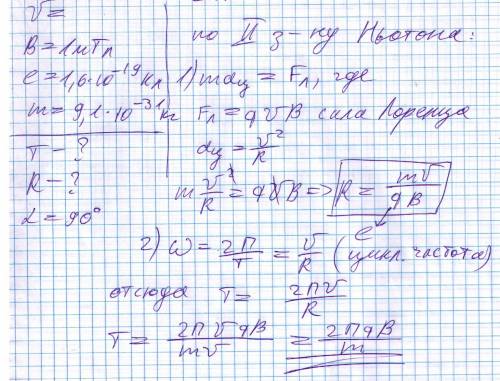 v =
B = 1 мТл
e = 1,6·10⁻¹⁹ Кл
m = 9,1·10⁻³¹ кг
T - ?
R - ?
α = 90°
по II з-ну Ньютона:
1) maц = Fл, где
Fл = qvB сила Лоренца
aц = v²/R
m v²/R = qvB => R = mv/qB
e
2) ω = 2П/T = v/R (цикл. частота)
отсюда T = 2Пv/R
T = 2ПvqB/mv = 2ПqB/m